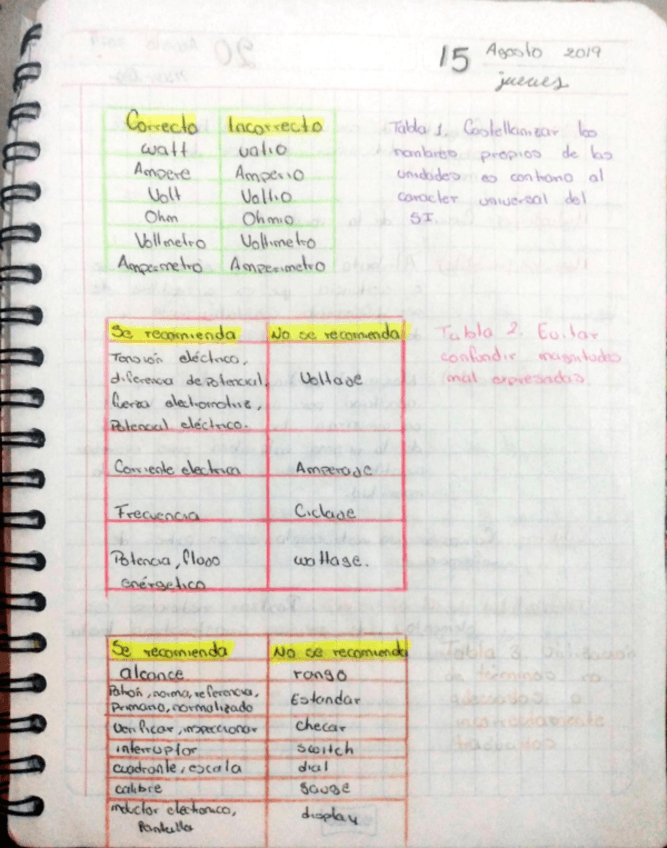 15 Agosto 2019
jueves
Correcto Incorrecto
watt vatio
Ampere Amperio
Volt Voltio
Ohm Ohmio
Voltmetro Voltimetro
Ampermetro Amperimetro
Tabla 1. Castellanizar los
nombres propios de las
unidades es contrario al
caracter universal del
SI.
Se recomienda No se recomienda
Tensión eléctrica,
diferencia de potencial,
fuerza electromotriz,
Potencial eléctrico.
Voltaje
Corriente electrica Amperaje
Frecuencia Ciclaje
Potencia, flujo
energetico
wattage.
Tabla 2. Evitar
confundir magnitudes
mal expresadas.
Se recomienda No se recomienda
alcance rango
Patron, norma, referencia,
primario, normalizado
Estandar
Verificar, inspeccionar checar
interruptor switch
cuadrante, escala dial
calibre gauge
inductor electronico,
Pantalla
display
Tabla 3. Utilización
de términos